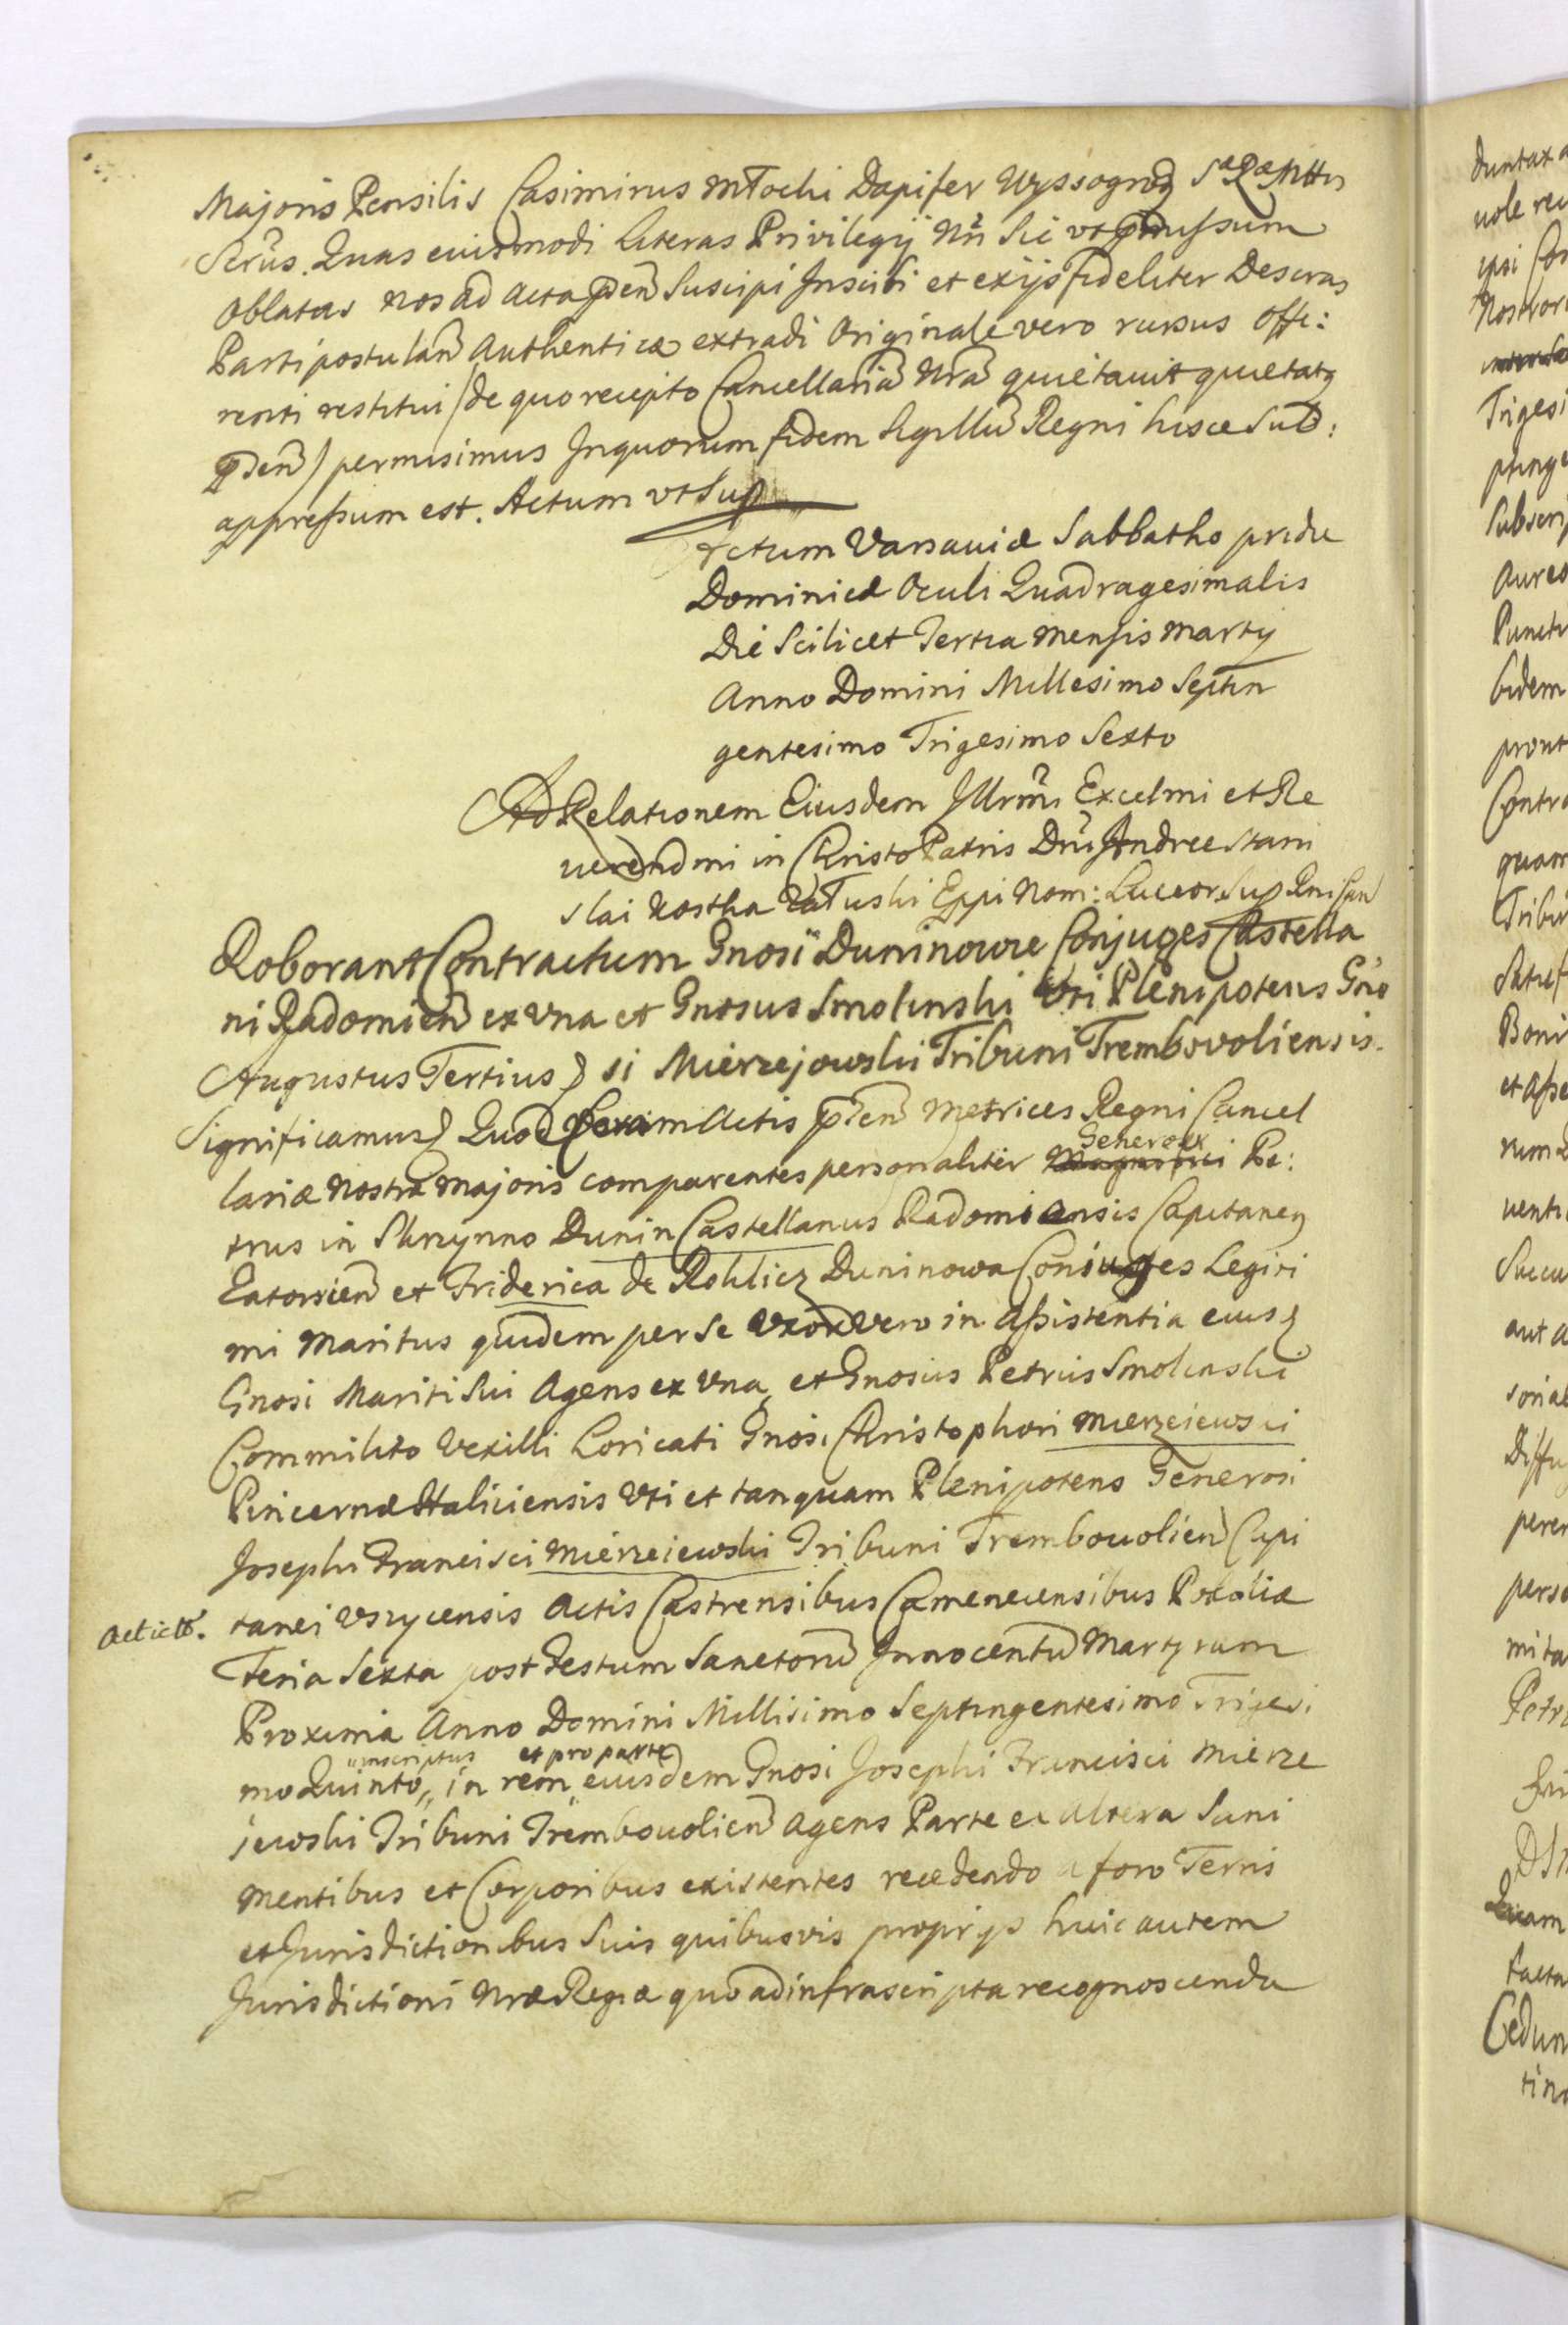 Majoris Pensilis Casimirus Młocki Dapifer Wyssogrod SæRæMttis
Scrius. Quas eiusmodi Literas Privilegij Nri sic vt præmissum
oblatas nos ad acta pden suscipi Inscribi et ex ijs fideliter Descras
Parti postulan authentice extradi Originale vero rursus offe:
renti restitui /de quo recepto Cancellariã Nrã quietavit quietatq
pden/ permisimus Inquorum fidem Sigillũ Regni hisce Sub:
appressum est. Actum vt Sup
Actum Varsaviæ Sabbatho pridie
Dominicæ Oculi Quadragesimalis
Die Scilicet Tertia Mensis Martij
Anno Domini Millesimo Septin
gentesimo Trigesimo Sexto
Ad Relationem Eiusdem Illrmi Excelmi et Re
verendmi in Christo Patris Dni Andreæ Stani
slai Kostka Załuski Eppi Nom: Luceor Sup Rni Can
Roborant Contractum Gnosi Duninowie Conjuges Castella
ni Radomien ex vna et Gnosus Smolinski Vti Plenipotens Gno
Augustus Tertius si Mierzejowski Tribuni Trembovoliensis.
Significamus Quod Coram Actis pden Metrices Regni Cancel
lariæ Nostræ Majoris comparentes personaliter Magnifici Generosi Pe:
trus in Skrzynno Dunin Castellanus Radomiensis Capitaneq
Zatorien et Friderica de Rohlicz Duninowa Coniuges Legiti
mi Maritus quidem per se Vxor Vero in Assistentia eiusq
Gnosi Mariti Sui Agens ex Vna, et Gnosus Petrus Smolinski
Commilito Vexilli Loricati Gnosi Christophori Mierzeiewski
Pincernæ Haliciensis Vti et tanquam Plenipotens Generosi
Josephi Francisci Mierzeiewski Tribuni Trembouolien Capi
Acticto. tanei Vszycensis Actis Castrensibus Camenecensibus Podoliæ
Feria Sexta post Festum Sanctorũ Innocentũ Martyrum
Proxima Anno Domini Millisimo Septingentesimo Trigesi
mo Quinto "inscriptus in rem et pro parte eiusdem Gnosi Josephi Francisci Mierze
jewski Tribuni Trembouolien Agens Parte ex Altera Sani
Mentibus et Corporibus existentes recedendo a foro Terris
et Jurisdictionibus Suis quibusvis proprijs huic autem
Jurisdictioni Nræ Regiæ quo ad infrascripta recognoscenda